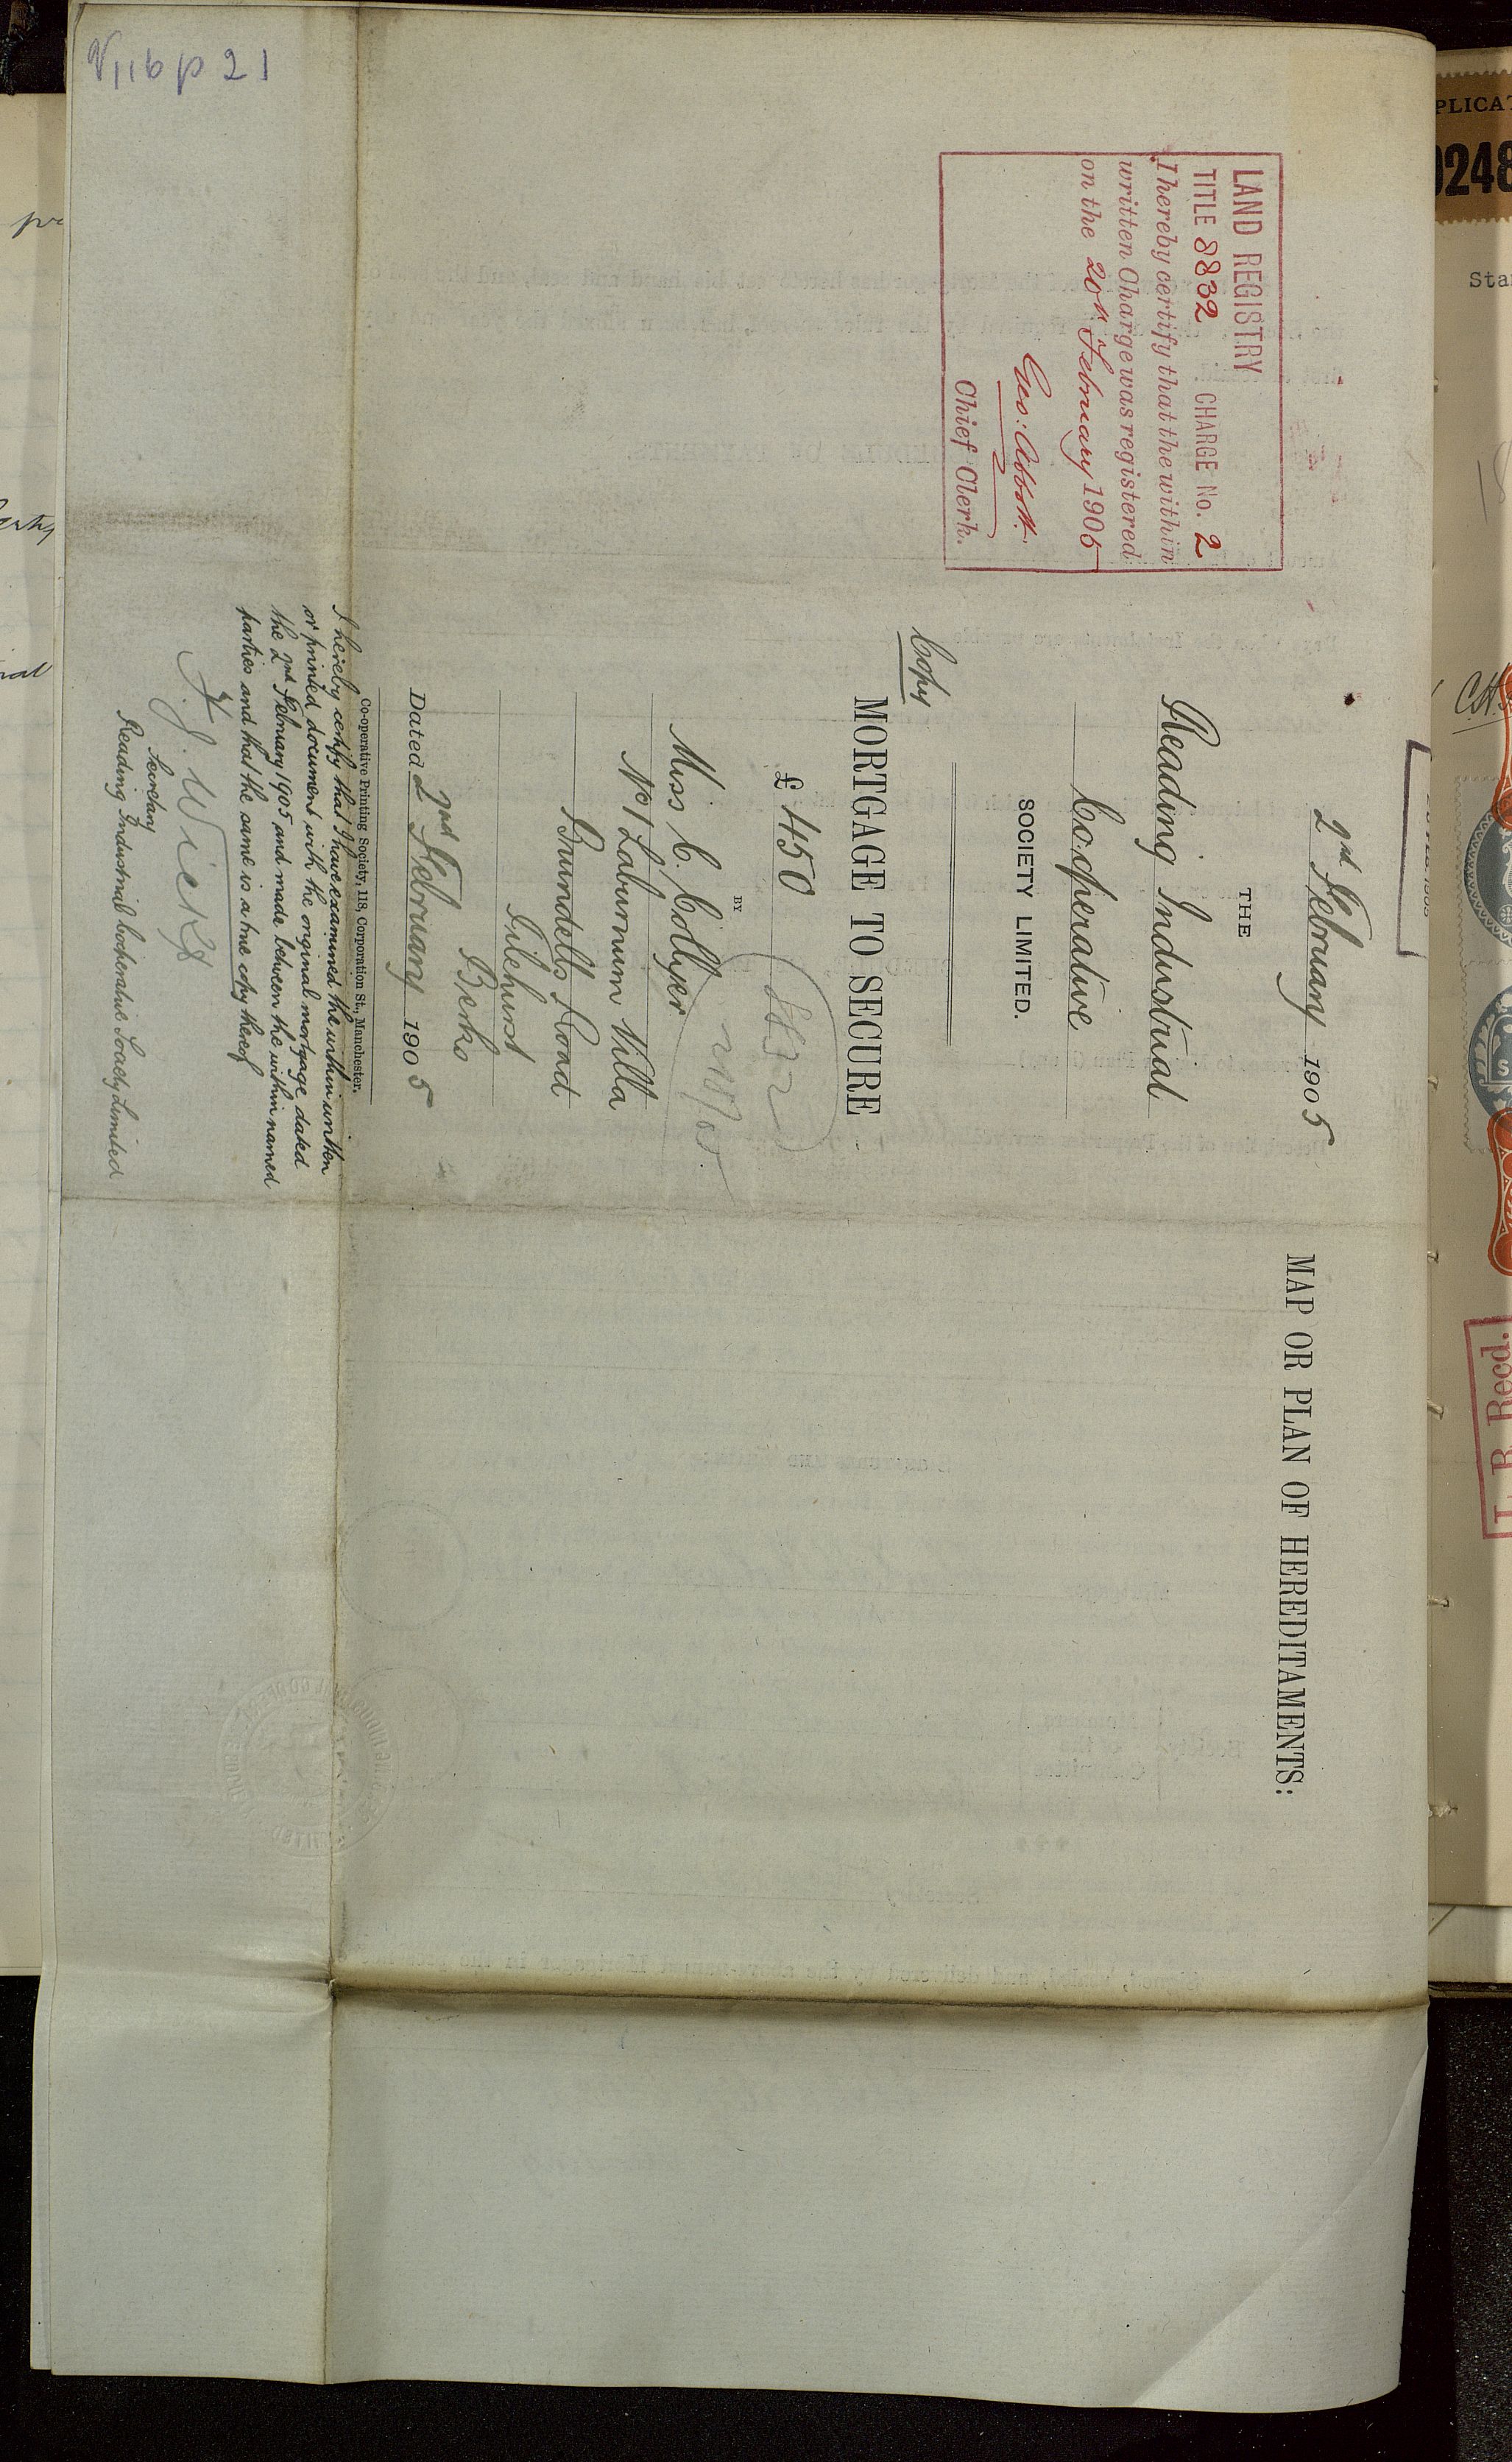 2nd February 1905
THE
Reading Industrial
Co:operative
SOCIETY LIMITED.
Copy
MORTGAGE TO SECURE
£ 450
8832
BY
Miss C. Collyer
No 1 Laburnum Villa
Brundells Road
Tilehurst
Berks
Dated 2nd February 1905
Co-operative Printing Society, 118, Corporation St., Manchester.
I hereby certify that I have examined the within written
or printed document with the original mortgage dated
the 2nd February 1905 and made between the within named
parties and that the same is a true copy thereof
J. Wicks
Secretary
Reading Industrial Cooperative Society Limited
LAND REGISTRY
TITLE 8832 CHARGE No. 2
I hereby certify that the within
written Charge was registered
on the 20th February 1905
Geo: Abbott.
Chief Clerk.
MAP OR PLAN OF HEREDITAMENTS:
p 21
PLICAT
0248
Sta
L. R. Recd.